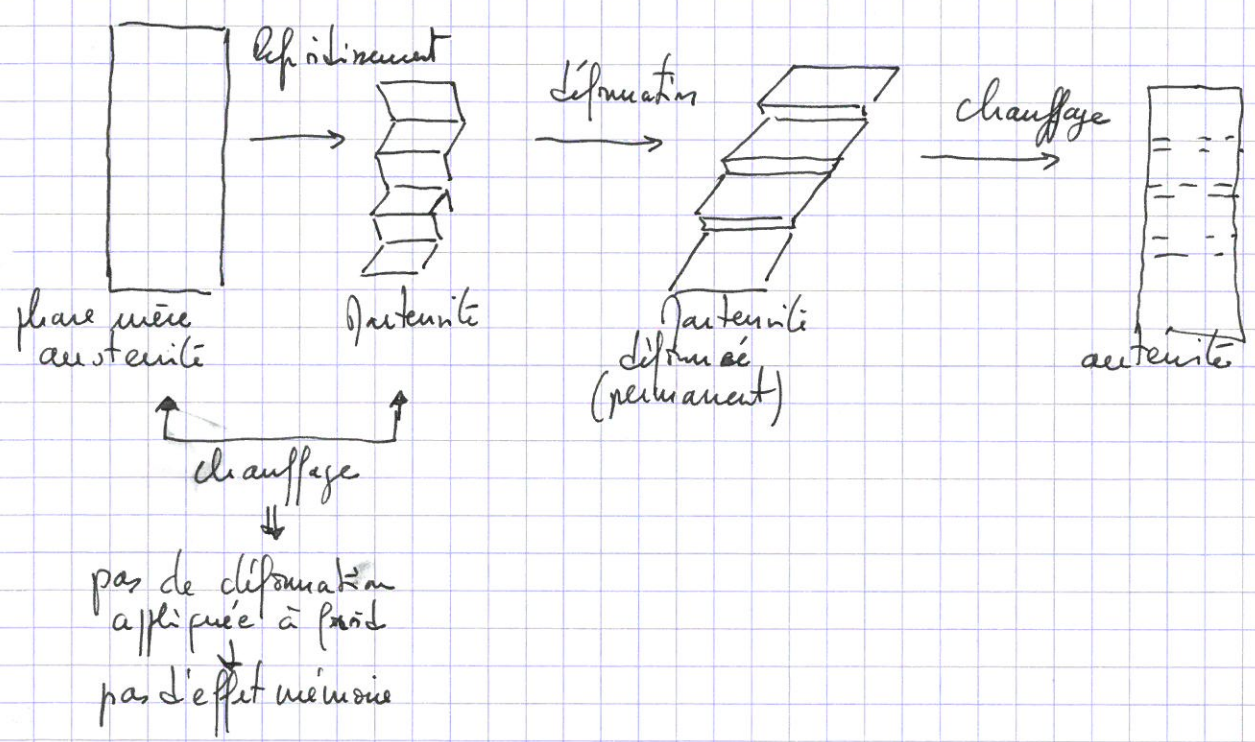 Refroidissement
déformation
chauffage
phase mère
austenite
Martensite
Martensite
déformée
(permanent)
austenite
chauffage
pas de déformation
appliquée à froid
pas d'effet mémoire